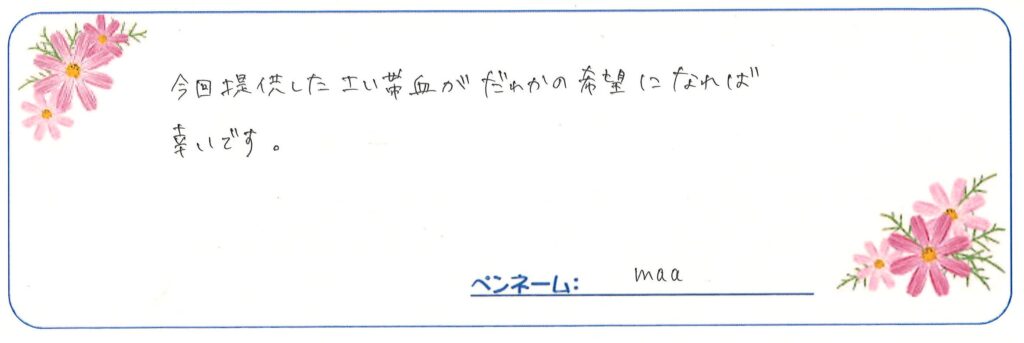 今回提供したさい帯血がだれかの希望になれば
幸いです。
ペンネーム: maa